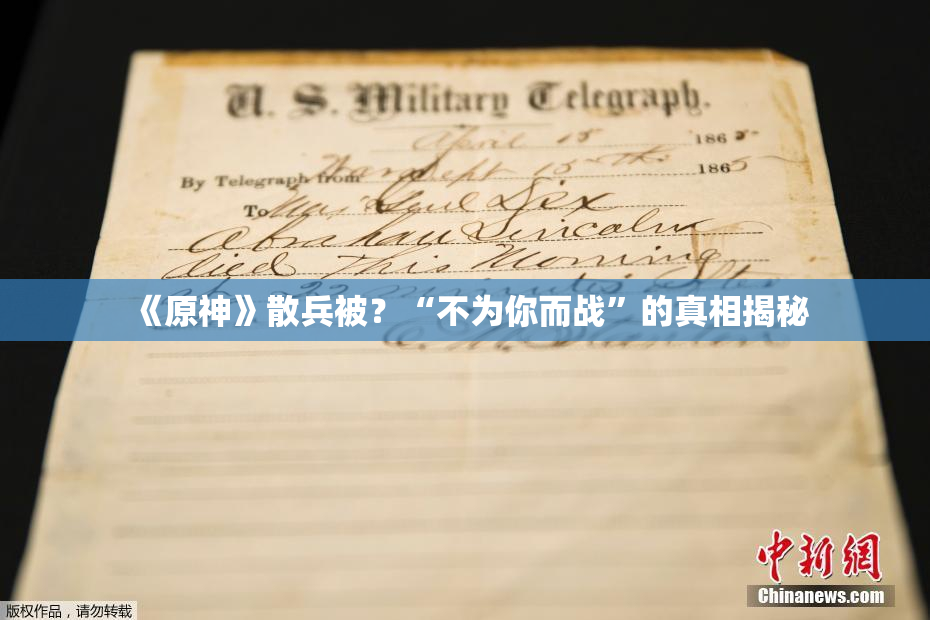 U. S. Military Telegraph.
April 15 1865
By Telegraph from War Dept 15th 1865
To Maj Genl Dix
Abraham Lincoln
died This Morning
at 22 minutes after
《原神》散兵被？“不为你而战”的真相揭秘
E. M. Stanton
中新网
Chinanews.com
版权作品，请勿转载